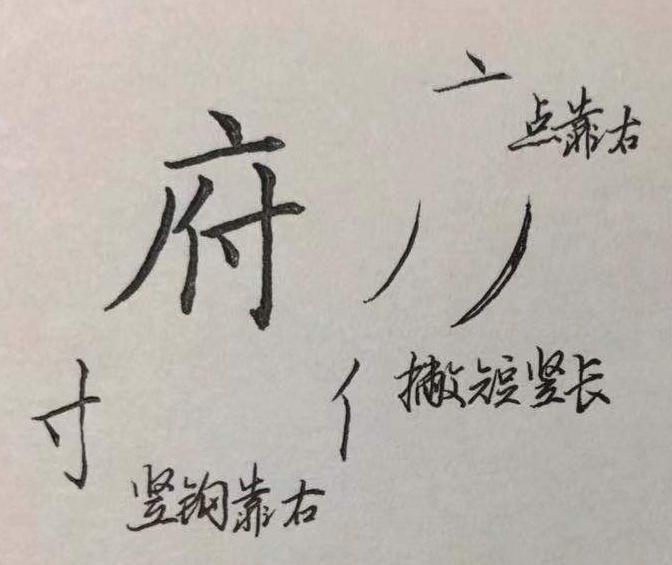 点靠右
府
撇短竖长
寸
亻
竖钩靠右